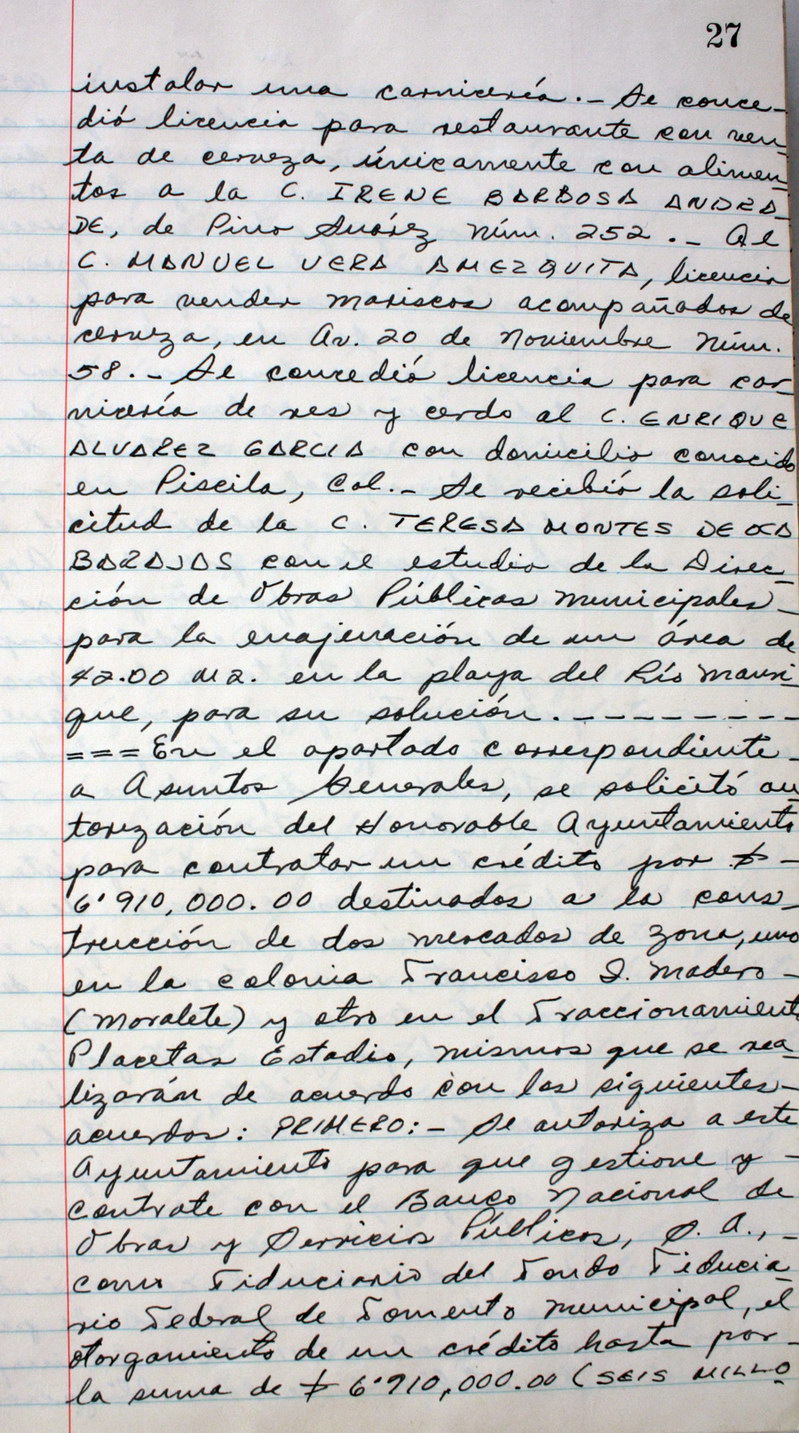 27
instalar una carnicería.- Se conce-
dió licencia para restaurante con ven-
ta de cerveza, únicamente con alimen-
tos a la C. IRENE BARBOSA ANDRA-
DE, de Pino Suárez Núm. 252.- Al
C. MANUEL VERA AMEZQUITA, licencia
para vender mariscos acompañados de
cerveza, en Av. 20 de Noviembre Núm.
58.- Se concedió licencia para car-
nicería de res y cerdo al C. ENRIQUE
ALVAREZ GARCIA con domicilio conocido
en Piscila, Col.- Se recibió la soli-
citud de la C. TERESA MONTES DE OCA
BARAJAS con el estudio de la Direc-
ción de Obras Públicas Municipales-
para la enajenación de un área de
42.00 M2. en la playa del Río Manri-
que, para su solución.- - - - - - - - -
===En el apartado correspondiente-
a Asuntos Generales, se solicitó au
torización del Honorable Ayuntamiento
para contratar un crédito por $-
6'910,000.00 destinados a la cons-
trucción de dos mercados de zona, uno
en la colonia Francisco I. Madero-
(Moralete) y otro en el Fraccionamiento
Placetas Estadio, mismos que se rea-
lizarán de acuerdo con los siguientes-
acuerdos: PRIMERO:- Se autoriza a este
Ayuntamiento para que gestione y -
contrate con el Banco Nacional de
Obras y Servicios Públicos, S. A.,-
como Fiduciario del Fondo Fiducia-
rio Federal de Fomento Municipal, el
otorgamiento de un crédito hasta por-
la suma de $ 6'910,000.00 (SEIS MILLO-